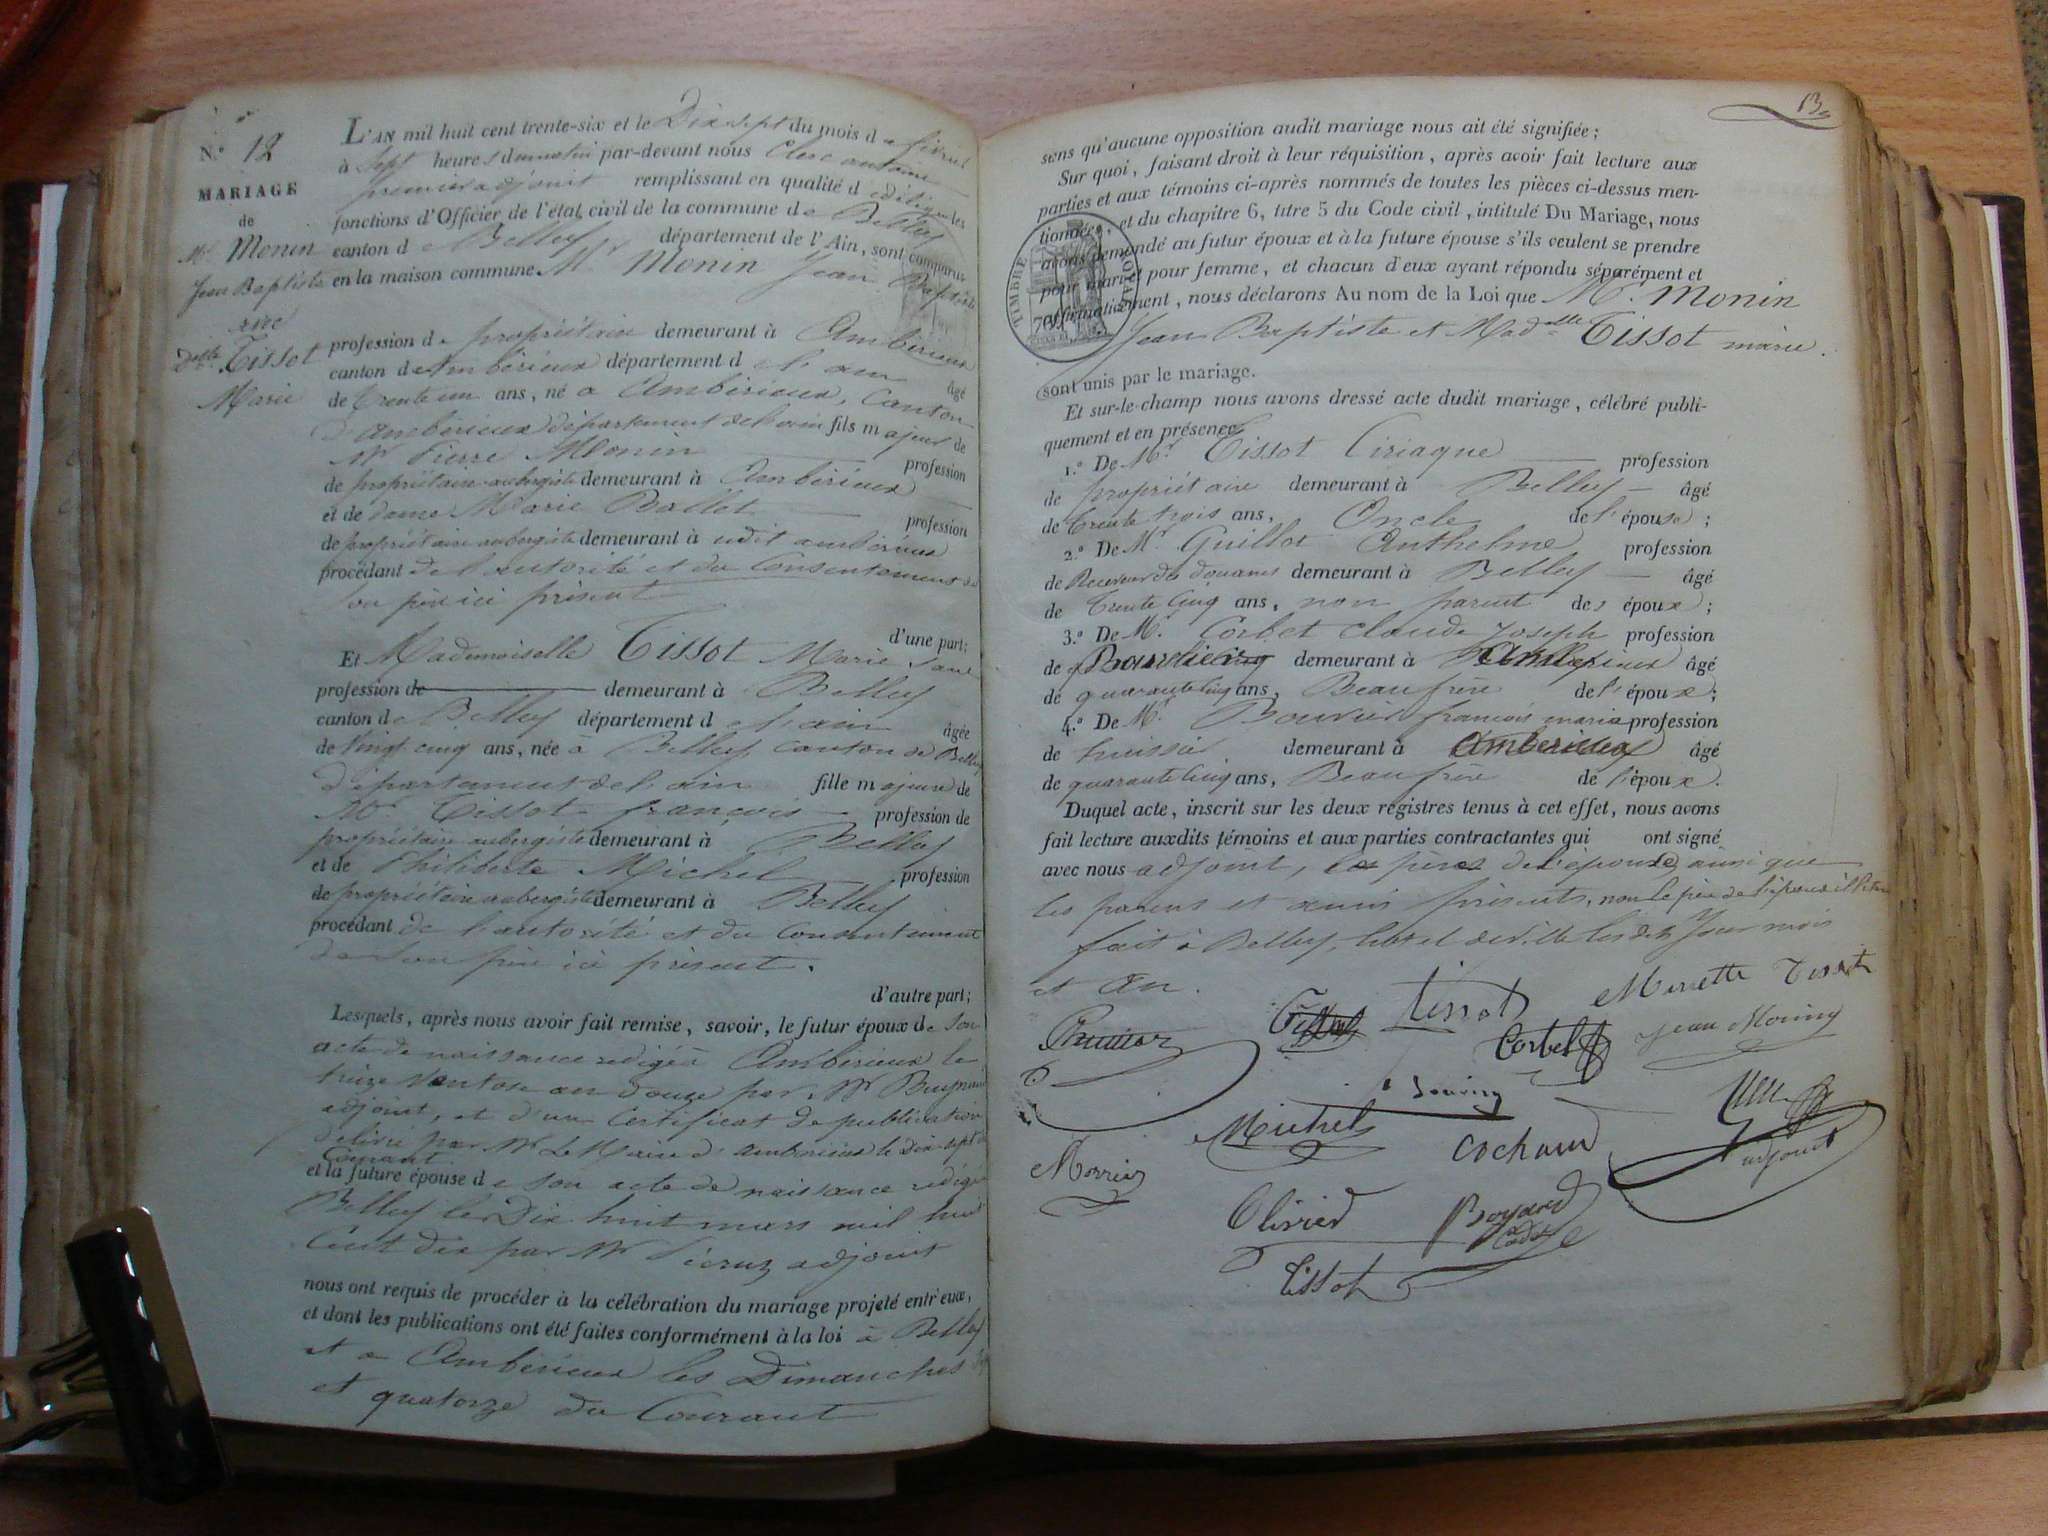 N.° 12
MARIAGE
de
Mr. Monin
Jean Baptiste
avec
Delle. Tissot
Marie
L'AN mil huit cent trente-six et le Dix sept du mois de fevrier
à Sept heures du matin par-devant nous Clerc antoine
premier adjoint remplissant en qualité de délégué les
fonctions d'Officier de l'état civil de la commune de Belley
canton de Belley département de l'Ain, sont comparus
en la maison commune Mr Monin Jean Baptiste
profession de propriétaire demeurant à Ambérieux
canton d'Ambérieux département de l'ain âgé
de trente un ans, né à Ambérieux, Canton
d'ambérieux département de l'ain fils majeur de
Mr Pierre Monin profession
de propriétaire aubergiste demeurant à Ambérieux
et de dame Marie Ballet profession
de propriétaire aubergiste demeurant à udit ambérieux
procédant de l'autorité et du Consentement de
son père ici présent
d'une part;
Et Mademoiselle Tissot Marie, sans
profession de demeurant à Belley
canton de Belley département de l'ain âgée
de vingt cinq ans, née à Belley Canton de Belley
département de l'ain fille majeure de
Mr Tissot francois profession de
propriétaire aubergiste demeurant à Belley
et de Philiberte Michel profession
de propriétaire aubergiste demeurant à Belley
procédant de l'autorité et du Consentement
de son père ici présent.
d'autre part;
Lesquels, après nous avoir fait remise, savoir, le futur époux de son
acte de naissance redigé à Ambérieux le
treize Ventose an douze par Mr
adjoint, et d'un Certificat de publication
délivré par Mr Le Maire d'ambérieux le Dix-sept du
Courant
et la future épouse de son acte de naissance redigé
Belley le Dix huit mars mil huit
Cent dix par Mr adjoint
nous ont requis de procéder à la célébration du mariage projeté entr'eux,
et dont les publications ont été faites conformément à la loi à Belley
et a Ambérieux les Dimanches sept
et quatorze du Courant
13
sans qu'aucune opposition audit mariage nous ait été signifiée;
Sur quoi, faisant droit à leur réquisition, après avoir fait lecture aux
parties et aux témoins ci-après nommés de toutes les pièces ci-dessus men-
tionnées, et du chapitre 6, titre 5 du Code civil, intitulé Du Mariage, nous
avons demandé au futur époux et à la future épouse s'ils veulent se prendre
pour mari et pour femme, et chacun d'eux ayant répondu séparément et
affirmativement, nous déclarons Au nom de la Loi que Mr. Monin
Jean Baptiste et Madelle Tissot marie.
TIMBRE ROYAL
sont unis par le mariage.
Et sur-le-champ nous avons dressé acte dudit mariage, célébré publi-
quement et en présence
1.° De Mr. Tissot Ciriaque profession
de propriétaire demeurant à Belley âgé
de trente trois ans, Oncle de l'épouse;
2.° De Mr Guillot Anthelme profession
de Receveur des douanes demeurant à Belley âgé
de trente cinq ans, non parent des époux;
3.° De Mr. Corbet claude joseph profession
de demeurant à Ambérieux âgé
de quarante cinq ans, Beau frère de l'époux;
4.° De Mr. Bouvier francois marie profession
de huissier demeurant à Ambérieux âgé
de quarante cinq ans, Beau frère de l'époux.
Duquel acte, inscrit sur les deux registres tenus à cet effet, nous avons
fait lecture auxdits témoins et aux parties contractantes qui ont signé
avec nous adjoint, le père de l'épouse, ainsi que
les parens et amis présents, non le père de l'époux
fait à Belley, hotel de ville les dits Jour mois
et An.
Tissot Minette Tissot
Corbet Jean Monin
Michel Cochaud adjoint
Olivier
Tissot